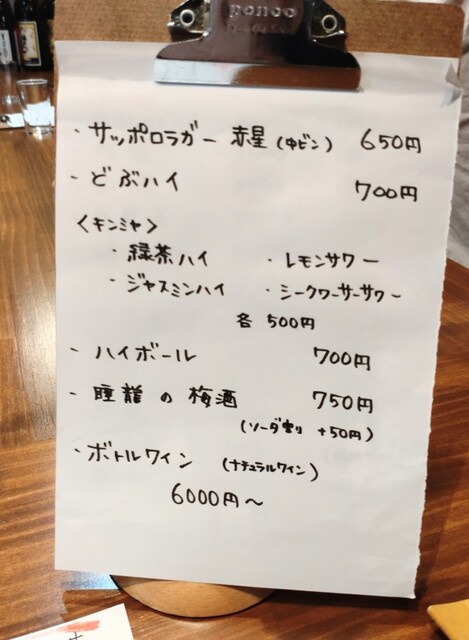 ponoo
・サッポロラガー 赤星 (中ビン) 650円
・どぶハイ 700円
〈キンミヤ〉
・緑茶ハイ ・レモンサワー
・ジャスミンハイ ・シークワーサーサワー
各 500円
・ハイボール 700円
・睡龍の梅酒 750円
(ソーダ割り +50円)
・ボトルワイン (ナチュラルワイン)
6000円〜